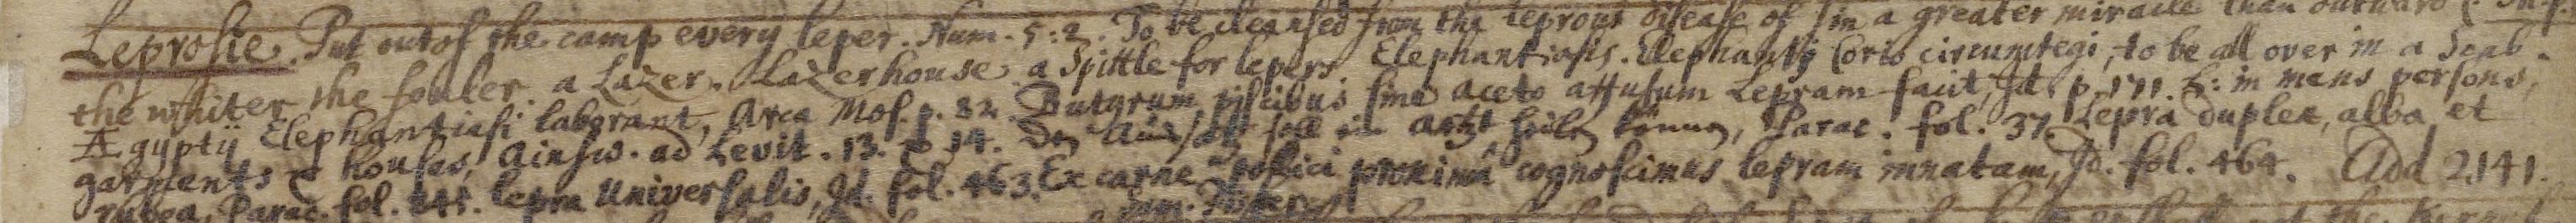 Leprosie. Put out of the camp every leper. Num. 5:2. To be cleansed from the leprous disease of sin a greater miracle than outward
the whiter the fouler. a Lazer. Lazerhouse a Spittle for lepers Elephantiasis. Elephantis Corio circumtegi, to be all over in a Scab.
Ægyptij Elephantiasi laborant, Arca Mos. p. 82. Butyrum piscibus sine aceto affusum Lepram facit, Id. p. 171. L: in mens persons,
garments & houses, Ainsw. ad Levit. 13. & 14. Den soll ein artzt heilen können, Parac. fol. 37. Lepra duplex, alba et
rubea, Parac. fol. lepra Universalis, Id. fol. 463. Ex carne pollici proxima cognoscimus lepram innatam, Id. fol. 464. Add 2141.